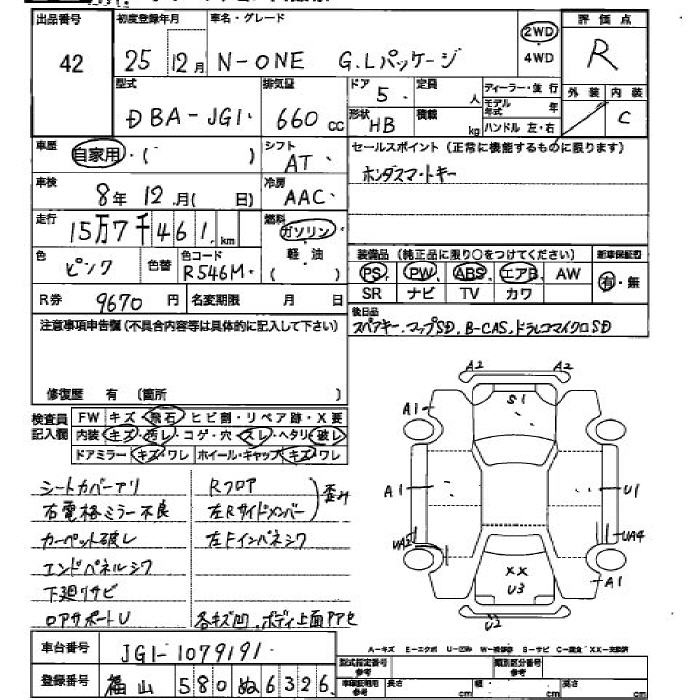 出品番号
42
初度登録年月
25 12月
車名・グレード
N-ONE G.Lパッケージ
2WD
4WD
評価点
R
型式
DBA-JG1
排気量
660 CC
ドア
5
定員
人
形状
HB
積載
kg
ディーラー・並行
モデル年式 年
ハンドル 左・右
外装 内装
C
車歴
自家用・( )
シフト
AT
セールスポイント (正常に機能するものに限ります)
ホンダスマートキー
車検
8年 12月( 日)
冷房
AAC
走行
15万7千461 km
燃料
ガソリン
軽・油
( )
色
ピンク
色替
色コード
R546M
装備品 (純正品に限り○をつけてください)
新車保証書
PS PW ABS エアB AW
SR ナビ TV カワ
有・無
R券 9670 円
名変期限 月 日
後日品
スペアキー、マップSD、B-CAS、ドラレコマイクロSD
注意事項申告欄(不具合内容等は具体的に記入して下さい)
修復歴 有 (箇所 )
検査員記入欄
FW キズ・飛石・ヒビ割・リペア跡・X要
内装 キズ・汚レ・コゲ・穴・スレ・ヘタリ・破レ
ドアミラー キズ・ワレ ホイール・キャップ キズ・ワレ
シートカバーアリ
右電格ミラー不良
カーペット破レ
エンドパネルシワ
下廻リサビ
ロアサポートU
Rフロア
左Rサイドメンバー
歪み
左Fインパネシワ
各キズ凹、ボディ上面アアセ
A2 A2
A1 S1 A1
A1 U1
UA3 UA4
XX
U3
A1
U2
車台番号
JG1-1079191
登録番号
福山 580 ぬ 6326
A-キズ E-エクボ U-凹み W-補修跡 S-サビ C-腐食 XX-交換済
型式指定番号 参考
類別区分番号 参考
車庫証明用 参考
長さ cm
幅 cm
高さ cm